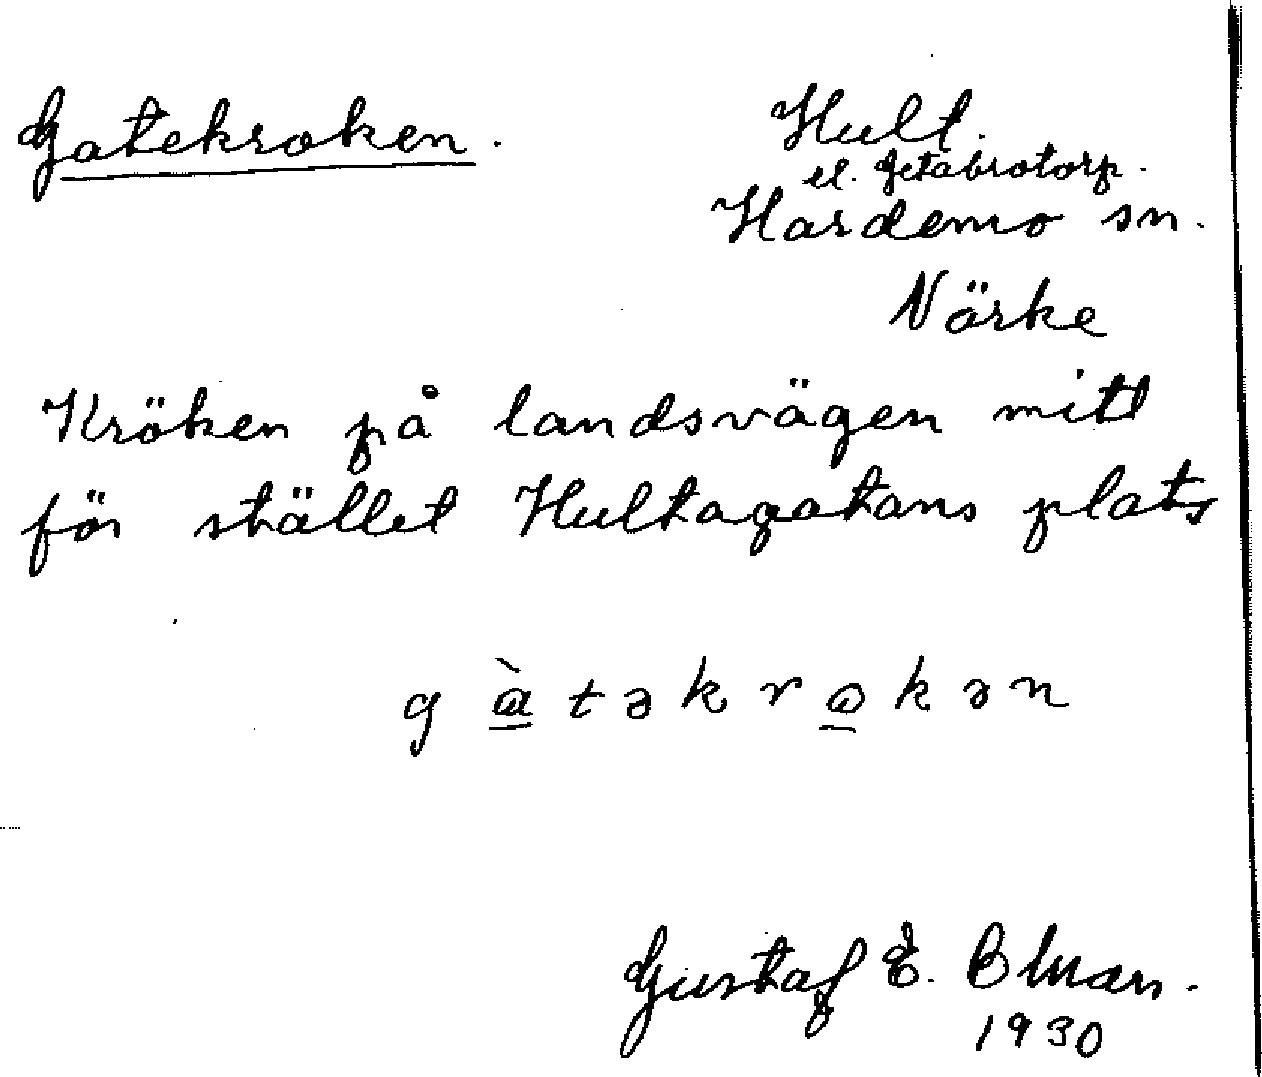 Gatekroken.
Hult.
el. Getabrotorp.
Hardemo sn.
Närke
Kröken på landsvägen mitt
för stället Hultagatans plats
gàtəkrokən
Gustaf E.
1930